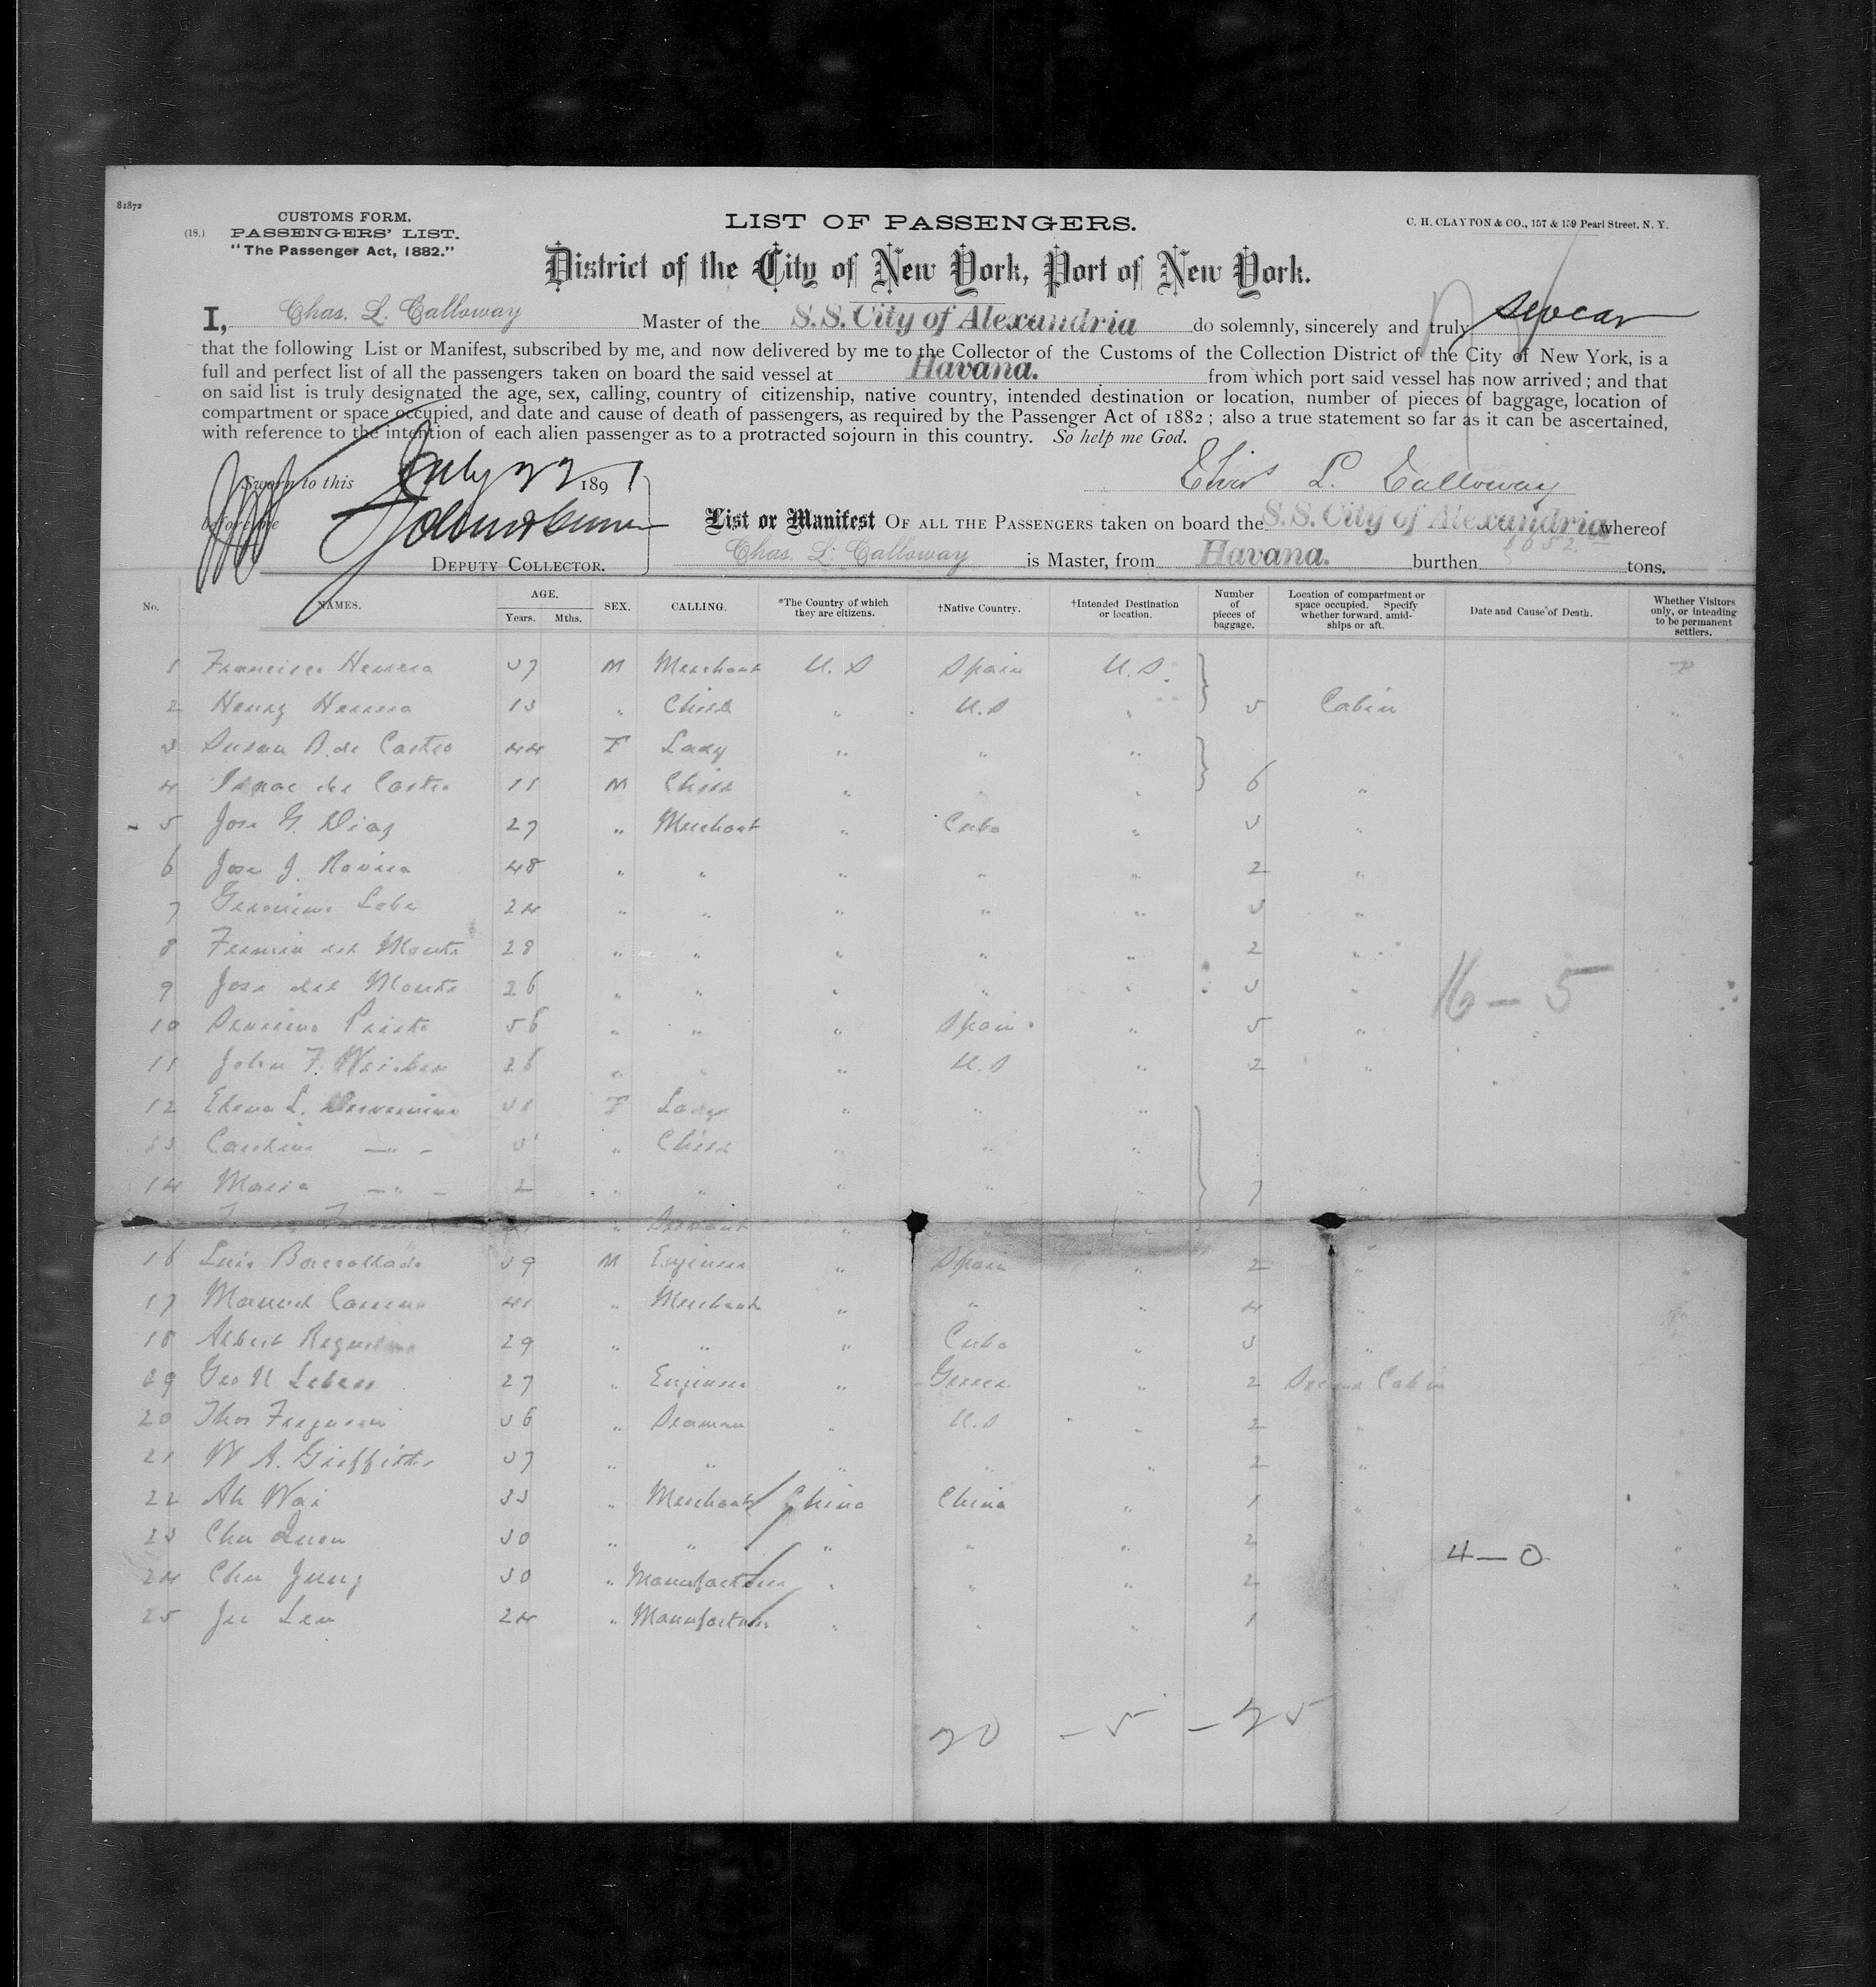 81872
(18.)
CUSTOMS FORM.
PASSENGERS' LIST.
"The Passenger Act, 1882."
LIST OF PASSENGERS.
C. H. CLAYTON & CO., 157 & 159 Pearl Street, N. Y.
District of the City of New York, Port of New York.
I, Chas. L. Calloway Master of the S.S. City of Alexandria do solemnly, sincerely and truly swear
that the following List or Manifest, subscribed by me, and now delivered by me to the Collector of the Customs of the Collection District of the City of New York, is a
full and perfect list of all the passengers taken on board the said vessel at Havana. from which port said vessel has now arrived; and that
on said list is truly designated the age, sex, calling, country of citizenship, native country, intended destination or location, number of pieces of baggage, location of
compartment or space occupied, and date and cause of death of passengers, as required by the Passenger Act of 1882; also a true statement so far as it can be ascertained,
with reference to the intention of each alien passenger as to a protracted sojourn in this country. So help me God.
Sworn to this July 22 1891
Chas L. Calloway
before me
DEPUTY COLLECTOR.
List or Manifest OF ALL THE PASSENGERS taken on board the S.S. City of Alexandria whereof
Chas. L. Calloway is Master, from Havana. burthen tons.
No. NAMES. AGE. Years. Mths. SEX. CALLING. *The Country of which they are citizens. †Native Country. †Intended Destination or location. Number of pieces of baggage. Location of compartment or space occupied. Specify whether forward, amidships or aft. Date and Cause of Death. Whether Visitors only, or intending to be permanent settlers.
1 Francisco Herrera 37 M Merchant U.S Spain U.S.
2 Henry Herrera 13 " Child " U.S " 5 Cabin "
3 Susan D. de Castro 44 F Lady " " "
4 Isaac de Castro 11 M Child " " " 6 "
5 Jose G. Diaz 27 " Merchant " Cuba " 3 "
6 Jose J. Rovira 48 " " " " " 2 "
7 Geronimo Lobe 24 " " " " " 3 "
8 Fermin del Monte 28 " " " " " 2 "
9 Jose del Monte 26 " " " " " 3 "
16 — 5
10 Prieto 56 " " " Spain " 5 "
11 John F. 26 " " " U.S " 2 "
12 Elena L. F Lady " " "
13 " Child " " "
14 Maria — " — 2 " " " " " 7 "
" Servant " " "
16 Luis 39 M Engineer " Spain " 2 "
17 Manuel 41 " Merchant " " " 4 "
18 Albert 29 " " " Cuba " 3 "
19 Geo N 27 " Engineer " Greece " 2 Second Cabin
20 Thos Ferguson 36 " Seaman " U.S " 2 "
21 W A. Griffiths 37 " " " " " 2 "
22 Ah Wai 33 " Merchant China China " 1 "
23 Chu Quon 30 " " " " " 2 "
4 — 0
24 Chu Jung 30 " Manufacturer " " " 2
25 Ju Len 24 " Manufacturer " " " 1
20 — 5 — 25